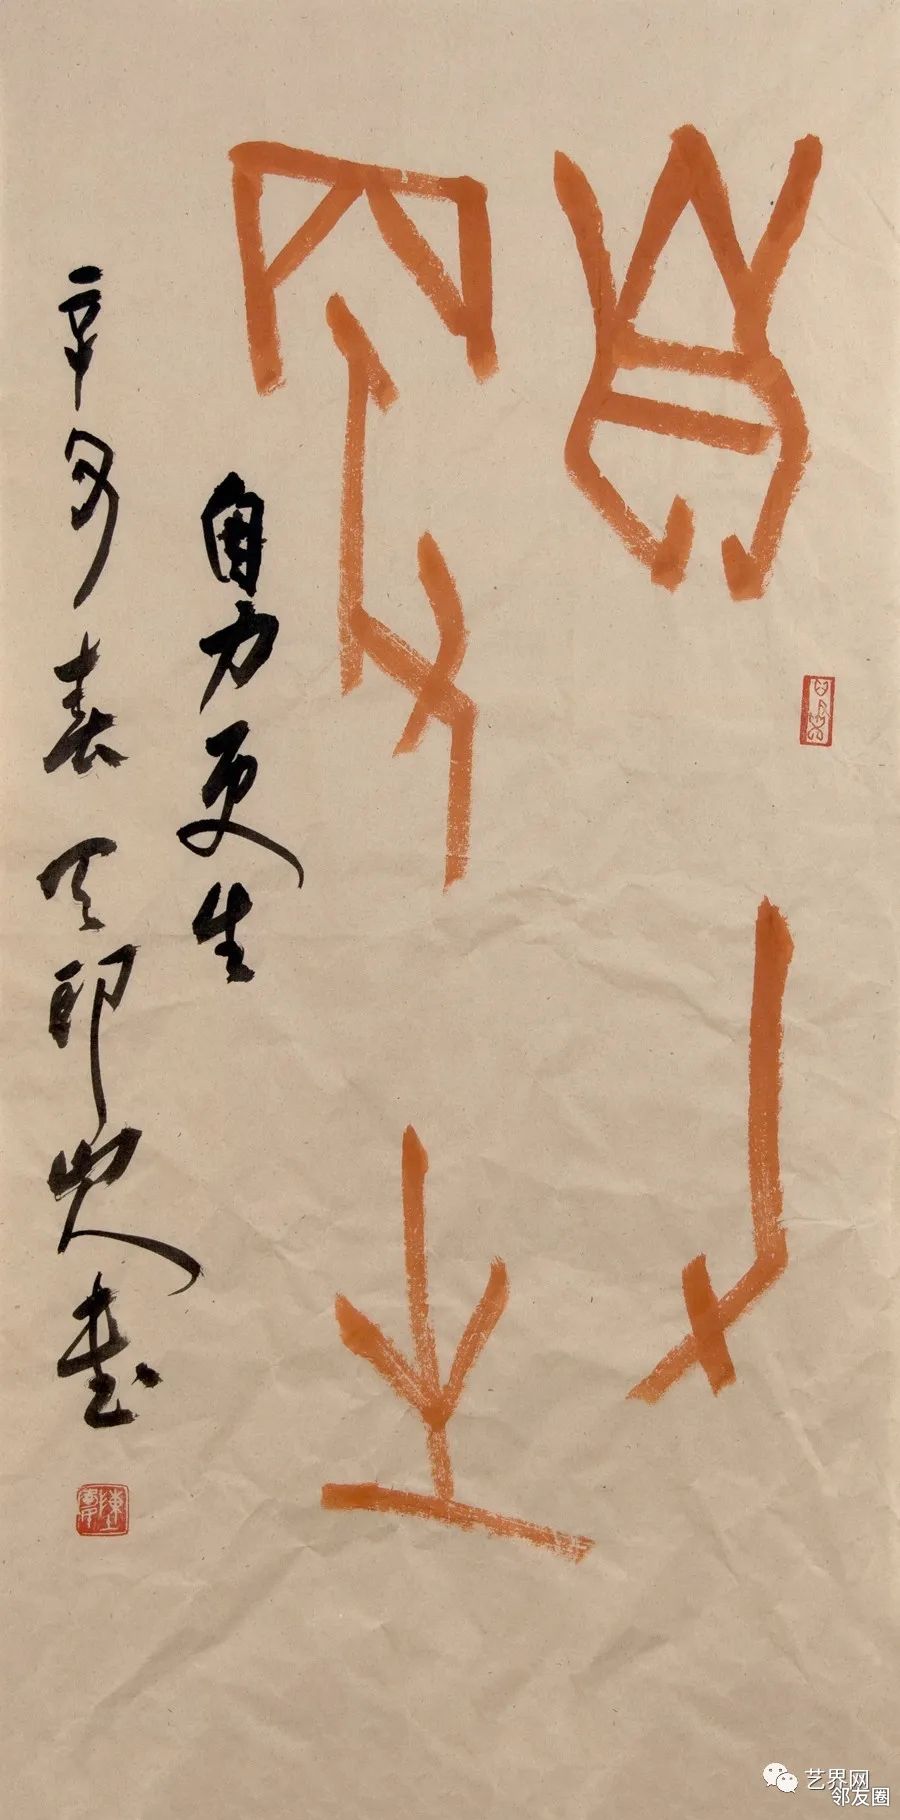 自力
更生
自力更生
辛丑春天印山人書
艺界网
邻友圈